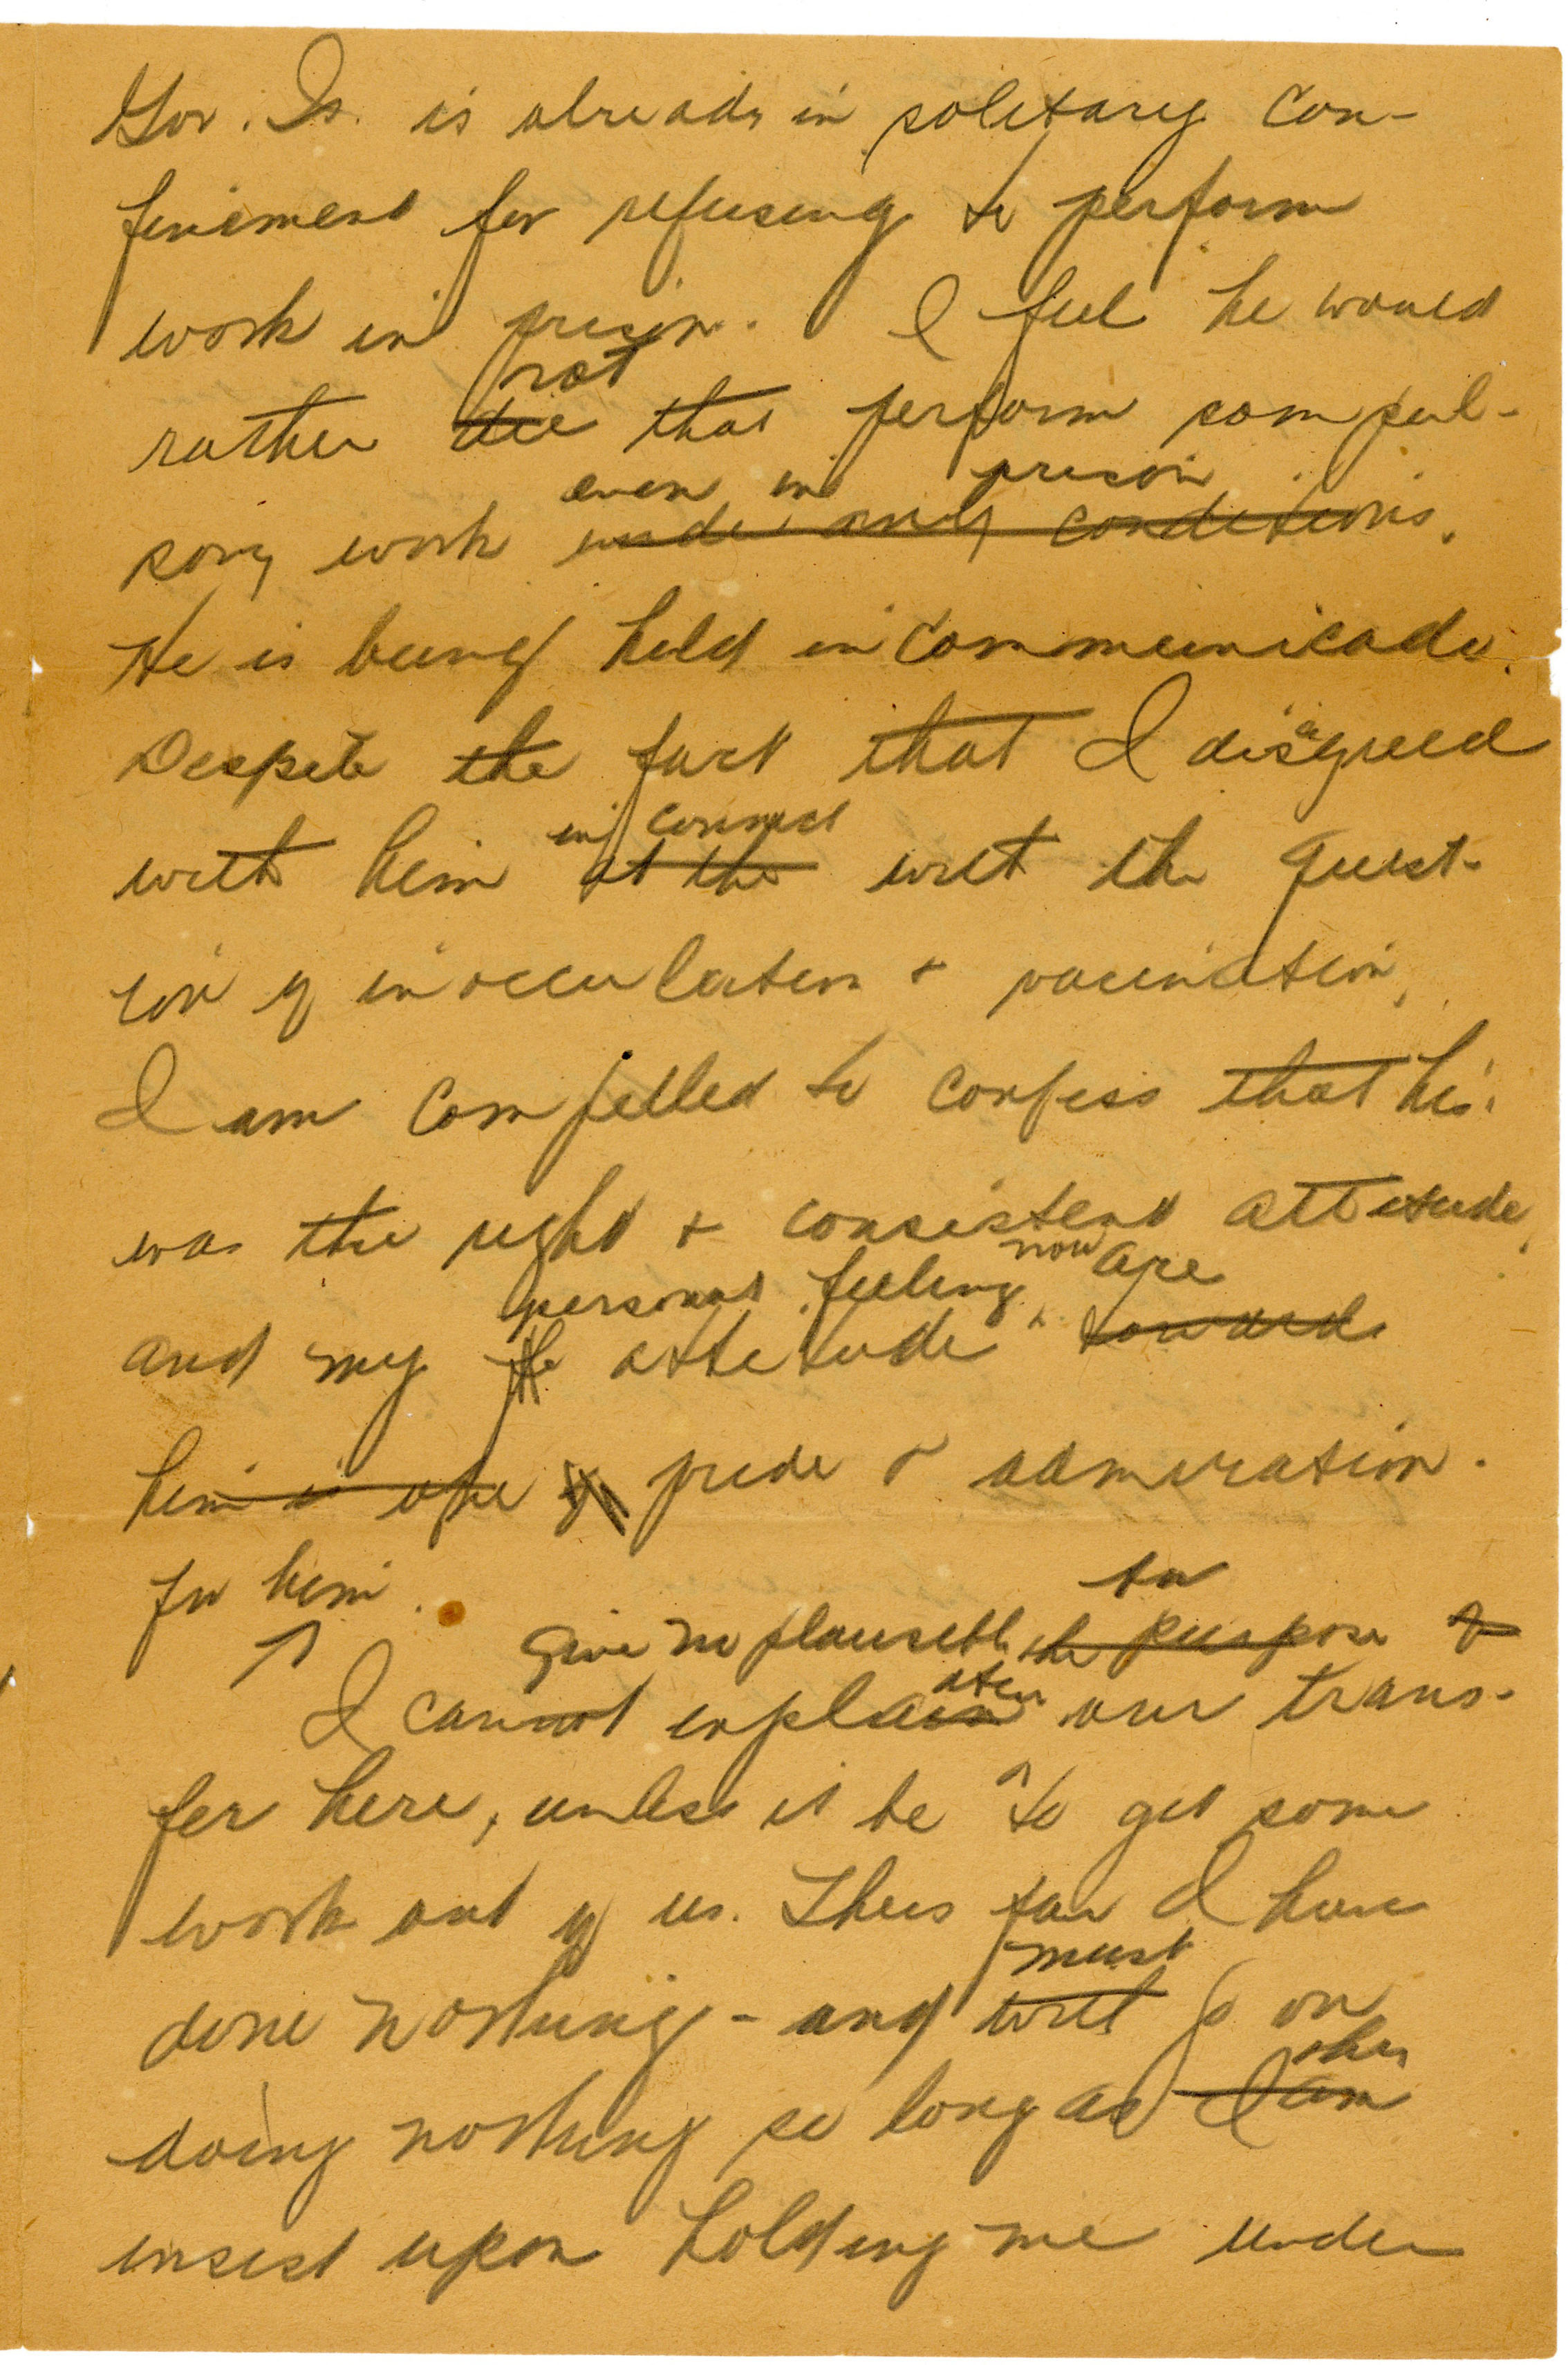 Gov. Is. is already in solitary con-
finement for refusing to perform
work in prison. I feel he would
rot
rather die that perform compul-
even in prison
sory work under any conditions.
He is being held incommunicado.
Despite the fact that I disagreed
in connect
with him at the with the quest-
ion of inocculation & vaccination,
I am compelled to confess that his
was the right & consistent attitude,
personal feeling now are
and my attitude toward
him is one of pride & admiration.
for him.
give no plausible the purpose of for
I cannot explain ation our trans-
fer here, unless it be to get some
work out of us. Thus far I have
must
done nothing - and will go on
they
doing nothing so long as I am
insist upon holding me under